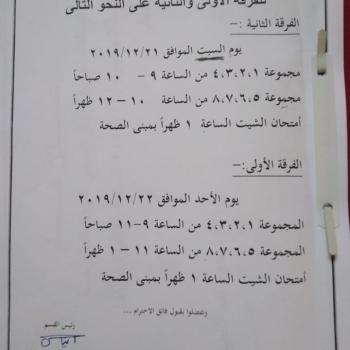 للفرقة الأولى والثانية على النحو التالى
الفرقة الثانية :-
يوم السبت الموافق ٢٠١٩/١٢/٢١
مجموعة ٤،٣،٢،١ من الساعة ٩ - ١٠ صباحاً
مجموعة ٨،٧،٦،٥ من الساعة ١٠ – ١٢ ظهراً
أمتحان الشيت الساعة ١ ظهراً بمبنى الصحة
الفرقة الأولى:-
يوم الأحد الموافق ٢٠١٩/١٢/٢٢
المجموعة ٤،٣،٢،١ من الساعة ٩-١١ صباحاً
المجموعة ٨،٧،٦،٥ من الساعة ١١ – ١ ظهراً
أمتحان الشيت الساعة ١ ظهراً بمبنى الصحة
وتفضلوا بقبول فائق الاحترام ...
رئيس القسم